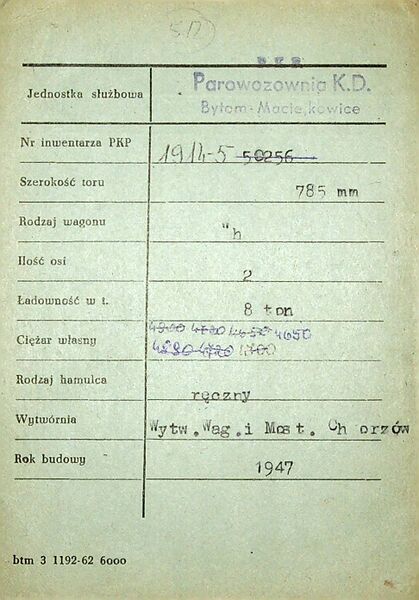 517
P K P
Jednostka służbowa Parowozownia K.D.
Bytom-Maciejkowice
Nr inwentarza PKP 1914-5 50256
Szerokość toru 785 mm
Rodzaj wagonu "h
Ilość osi 2
Ładowność w t. 8 ton
Ciężar własny 4650
Rodzaj hamulca ręczny
Wytwórnia Wytw.Wag.i Most. Chorzów
Rok budowy 1947
btm 3 1192-62 6000